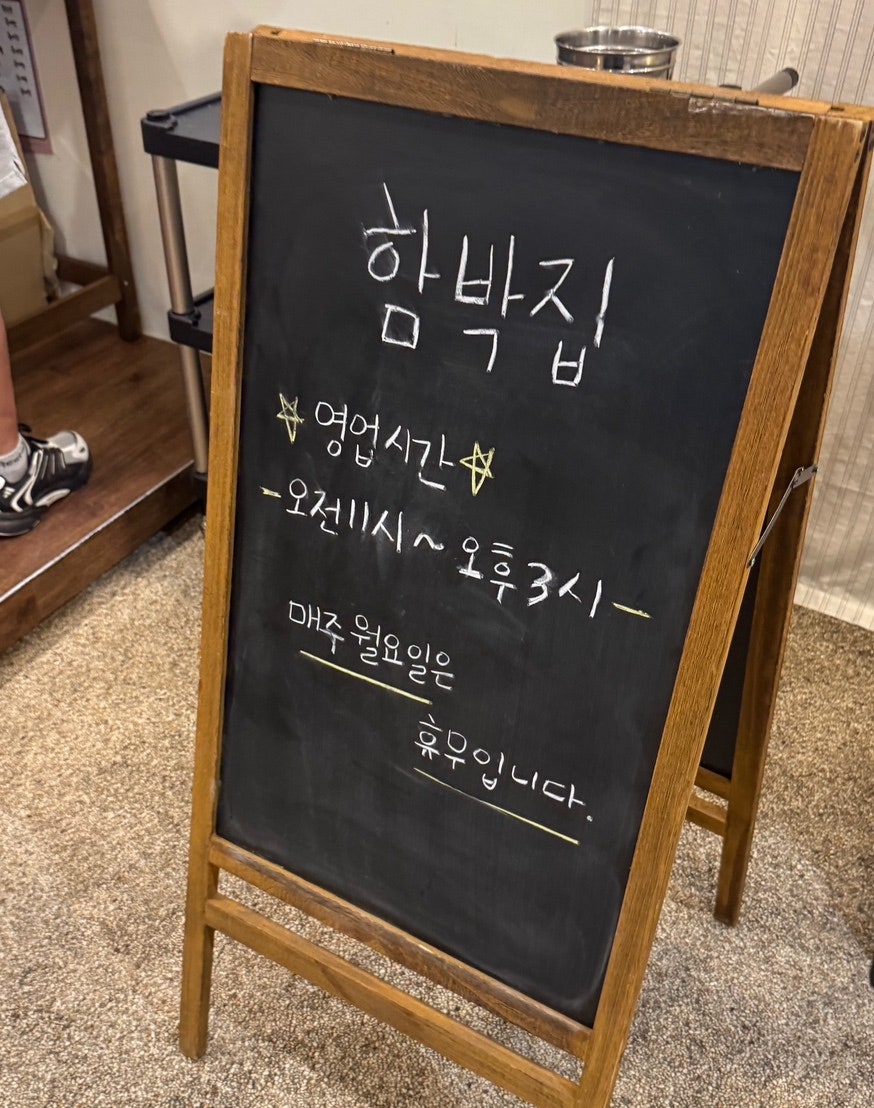 함박집
☆영업시간☆
-오전11시~오후3시-
매주 월요일은
휴무입니다.